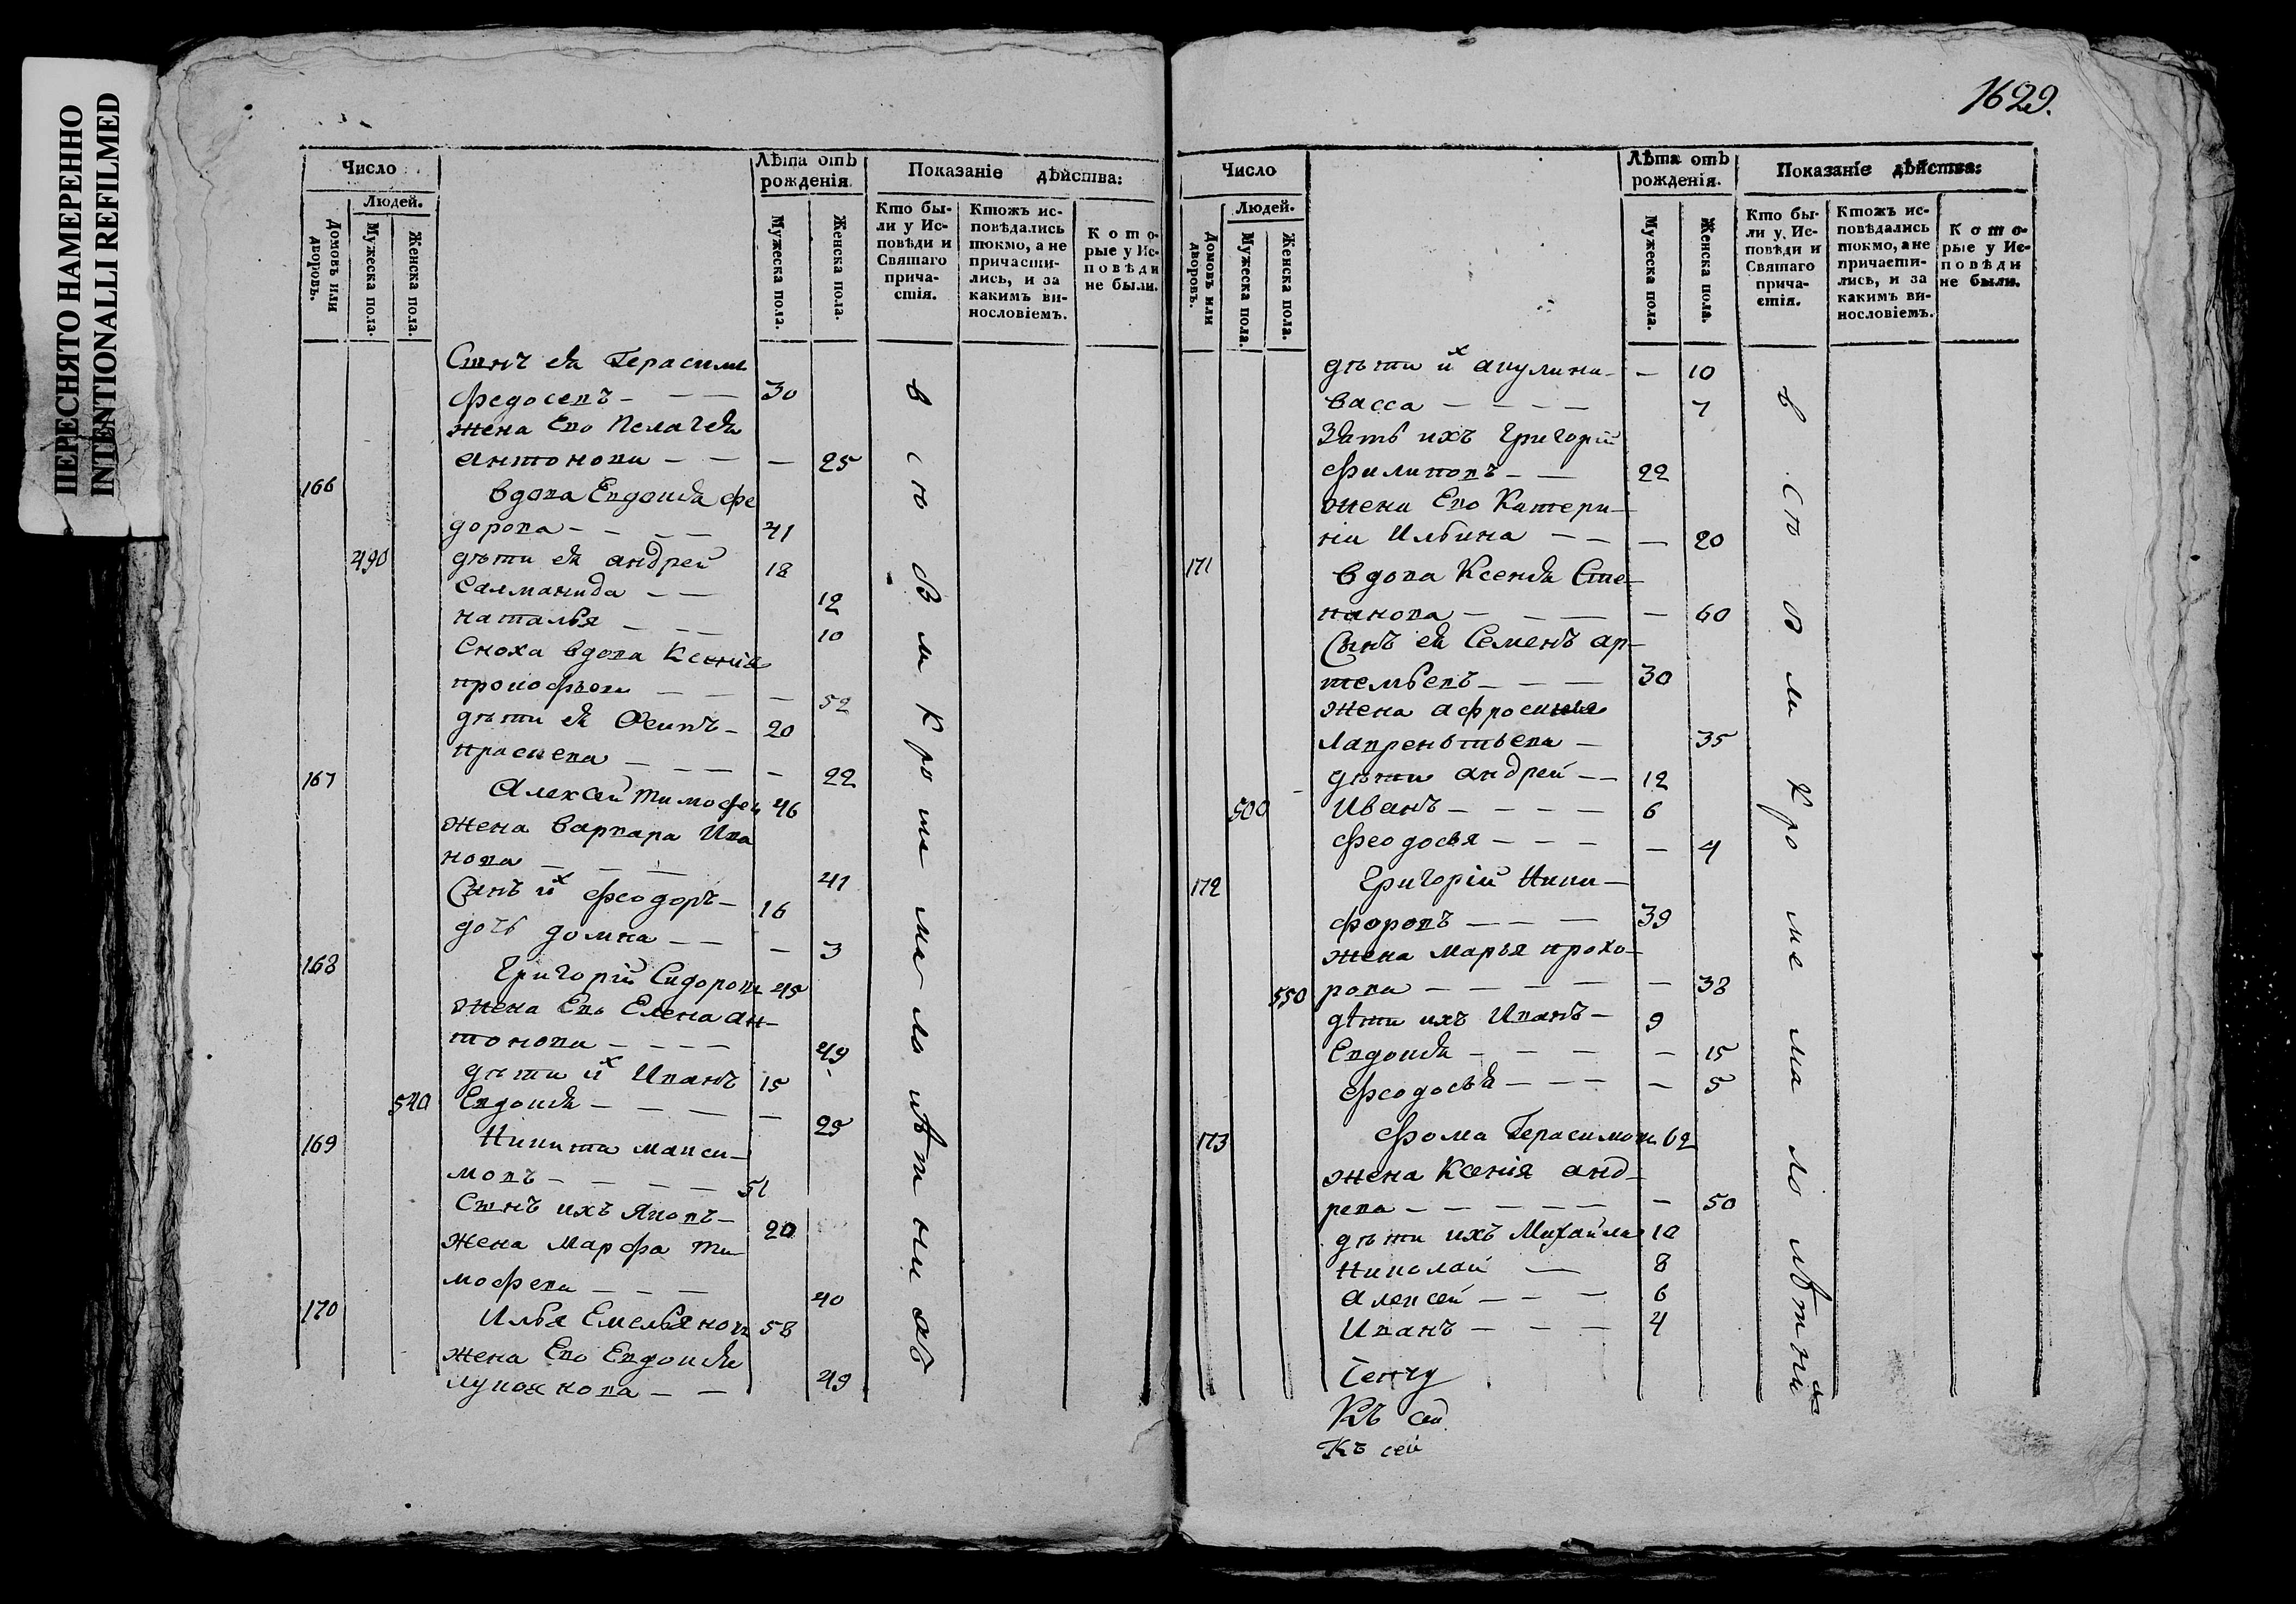 ПЕРЕСНЯТО НАМЕРЕННО
INTENTIONALLI REFILMED
Число
Людей.
Домовъ или дворовъ.
Мужеска пола.
Женска пола.
Лѣта отъ рожденія.
Мужеска пола.
Женска пола.
Показаніе дѣйства:
Кто были у Исповѣди и Святаго причастія.
Ктожъ исповѣдались токмо, а не причастились, и за какимъ винословіемъ.
Которые у Исповѣди не были.
Сынъ ея Герасимъ
Федосевъ - - - 30
жена Ево Пелагея
антонова - - - 25
166 вдова Евдокія Фе
дорова - - - 41
490 дѣти ея андрей 18
Салманида - - 12
наталья - - - 10
Сноха вдова Ксенія
прокофьева - - - 52
дѣти ея Осипъ - 20
прасковья - - - 22
167 Алексей тимофеи 46
жена варвара Ива
нова - - - 41
Сынъ их Феодоръ - 16
дочь домна - - - 3
168 Григорій Сидоровъ 45
жена Ево Елена ан-
тонова - - - - 49
дѣти их Иванъ 15
540 Евдокія - - - - 25
169 Никита макси-
мовъ - - - - 51
Сынъ ихъ Яковъ - 20
жена Марфа ти-
мофева - - - 40
170 Илья Емельяновъ 58
жена Ево Евдокія
лукоянова - - 49
всю св м кроме малолѣтныхъ
1629.
Число
Людей.
Домовъ или дворовъ.
Мужеска пола.
Женска пола.
Лѣта отъ рожденія.
Мужеска пола.
Женска пола.
Показаніе дѣйства:
Кто были у Исповѣди и Святаго причастія.
Ктожъ исповѣдались токмо, а не причастились, и за какимъ винословіемъ.
Которые у Исповѣди не были.
дѣти их акулина - - 10
васса - - - - 7
Зять ихъ Григорій
Филиповъ - - 22
жена Ево Катери-
на Ильина - - - 20
171 вдова Ксенія Сте-
панова - - - 60
Сынъ ея Семенъ ар-
темьевъ - - - 30
жена афросинья
Лаврентьева - 35
дѣти андрей - - 12
500 Иванъ - - - - 6
Феодосья - - - - 4
172 Григорій Ники-
форовъ - - - 39
жена марья прохо-
550 рова - - - - - 38
дѣти ихъ Иванъ - 9
Евдокія - - - - 15
Феодосья - - - - 5
173 Фома Герасимовъ 62
жена Ксенія анд-
рева - - - - - - 50
дѣти ихъ Михайла 10
Николай - 8
алексей - - - 6
Иванъ - - - 4
Къ сей
Къ сей
кроме малолѣтныхъ